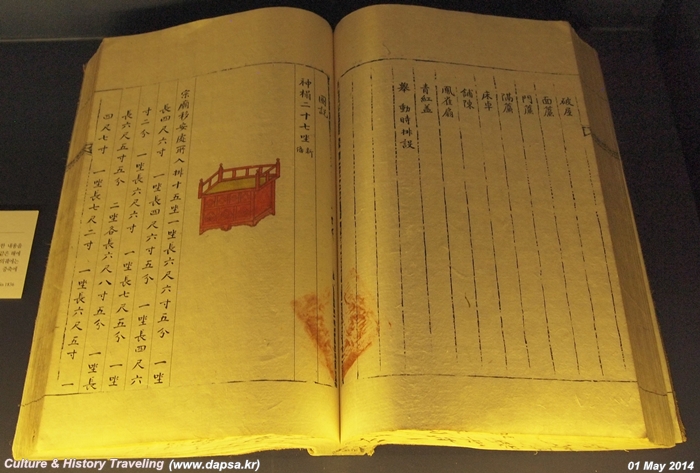 面簾
門簾
滿簾
鋪陳
鳳雀扇
青紅盖
輦 動時排設
圖說
神榻二十七坐 新備
宗廟移安處所入排十五坐一坐長四尺六寸五分 一坐
長四尺六寸 一坐長四尺六寸五分 一坐長四尺六
寸二分 一坐長六尺六寸 一坐長七尺五分 一坐
長六尺五寸五分 二坐各長六尺八寸五分 一坐長
四尺七寸 一坐長七尺二寸 一坐長六尺五寸 一
한 내용을
같은 해에
Culture & History Traveling (www.dapsa.kr)
01 May 2014